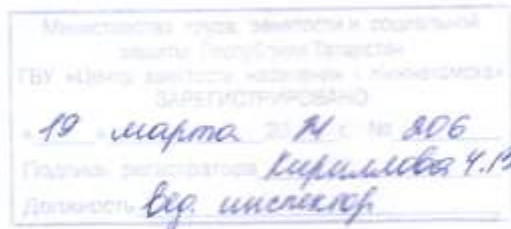 Министерство труда, занятости и социальной
защиты Республики Татарстан
ГБУ «Центр занятости населения г. Нижнекамска»
ЗАРЕГИСТРИРОВАНО
« 19 » марта 20 г. № 206
Подпись регистратора Кириллова
Должность вед. инспектор